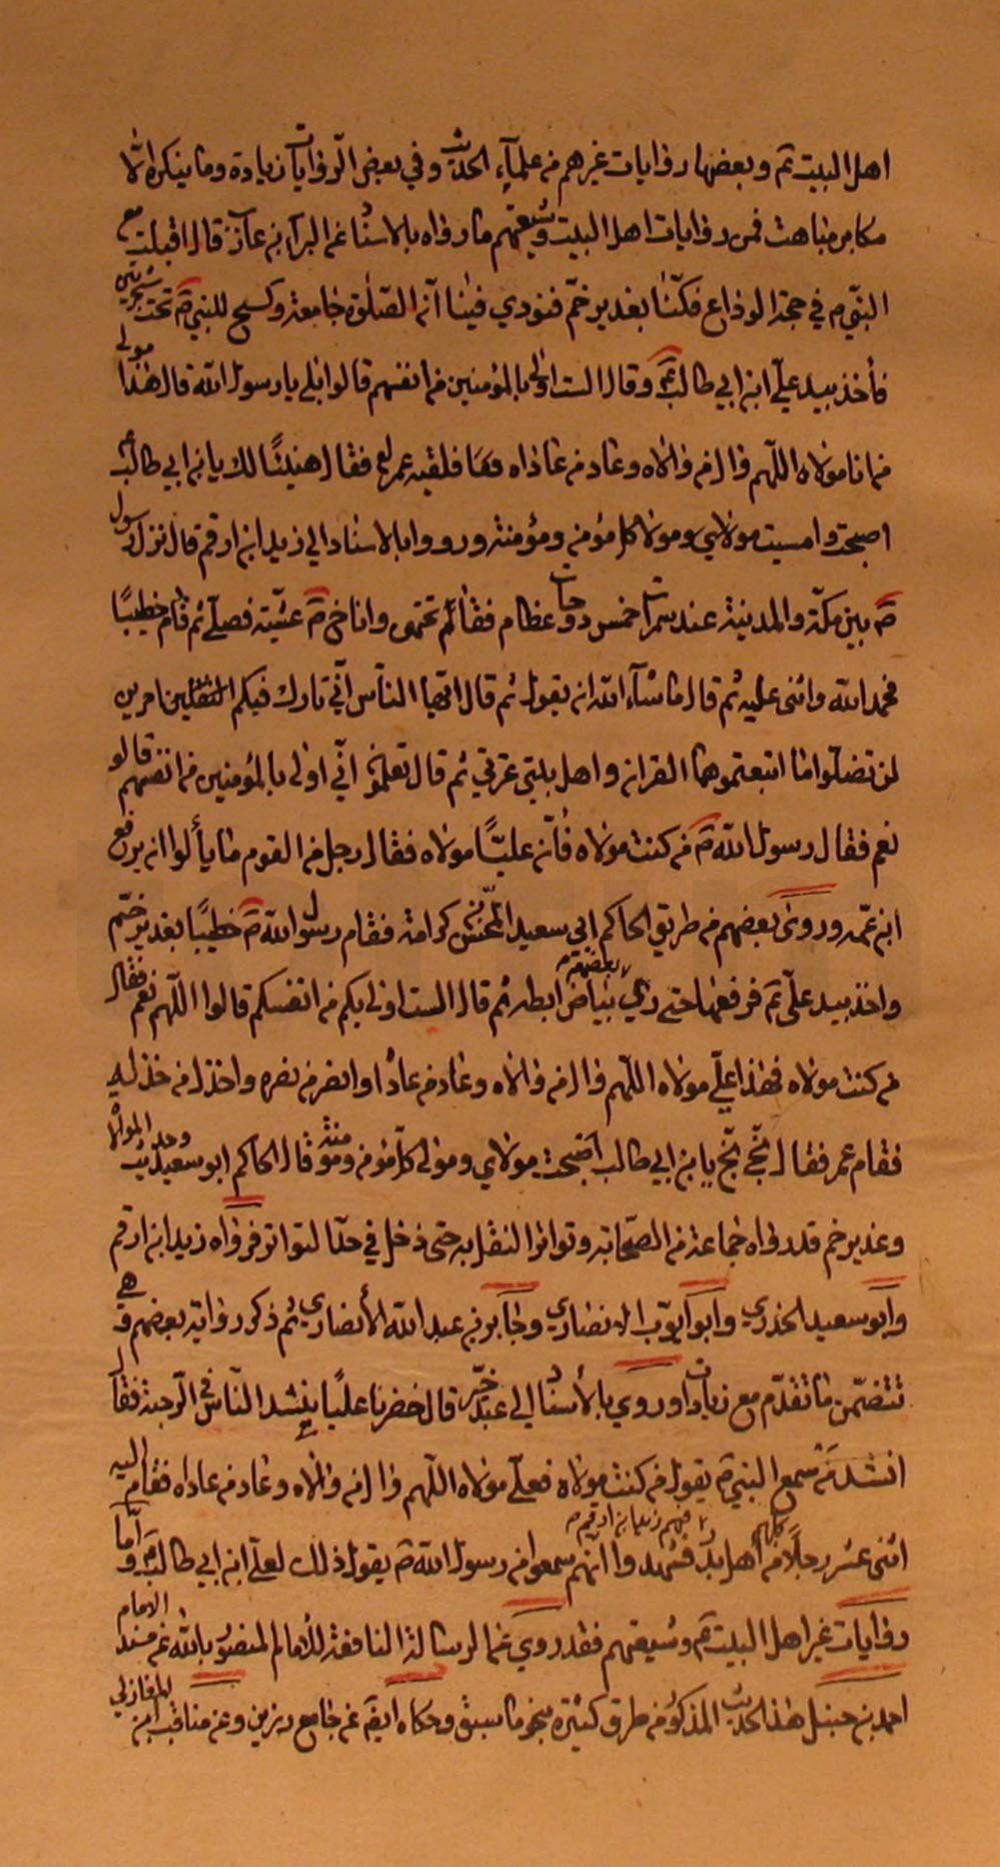 اهل البيت عم وبعضها روايات غيرهم من علماء الحديث وفي بعض الروايات زيادة وما ينكره الا
مكابر مباهت فمن روايات اهل البيت وشيعتهم ما رواه بالاسناد عن البراء بن عازب قال اقبلت مع
النبي م في حجة الوداع فكنا بغدير خم فنودي فينا ان الصلوة جامعة وكسح للنبي صم تحت شجرتين
فأخذ بيد علي ابن ابي طالب عم وقال الست اولى بالمؤمنين من انفسهم قالوا بلى يا رسول الله قال هذا مولى
من انا مولاه اللهم وال من والاه وعاد من عاداه فلقيه عمر فقال هنيئا لك يا بن ابي طالب
اصبحت وامسيت مولاي ومولا كل مؤمن ومؤمنة ورووا بالاسناد الى زيد ابن ارقم قال نزل رسول
صم بين مكة والمدينة عند سمرات خمس دوحات عظام فقام تحتهن واناخ صم عشية فصلى ثم قام خطيبا
فحمد الله واثنى عليه ثم قال ما شاء الله ان يقول ثم قال ايها الناس اني تارك فيكم الثقلين امرين
لن تضلوا ما اتبعتموهما القران واهل بيتي عترتي ثم قال تعلمون اني اولى بالمؤمنين من انفسهم قالو
نعم فقال رسول الله صم من كنت مولاه فأن عليا مولاه فقال رجل من القوم ما يألوا ان يرفع
ابن عمه وروى بعضهم من طريق الحاكم ابي سعيد المحسن كرامة فقام رسول الله صم خطيبا بغدير خم
واخذ بيد علي عم فرفعها حتى رؤي بياض ابطه ثم قال الست اولى بكم من انفسكم قالوا اللهم نعم فقال
من كنت مولاه فهذا علي مولاه اللهم وال من والاه وعاد من عاداه وانصر من نصره واخذل من خذله
فقام عمر فقال بخ بخ يا بن ابي طالب اصبحت مولاي ومولى كل مؤمن ومؤمنة قال الحاكم ابو سعيد وحديث الموالاة
وغدير خم قد رواه جماعة من الصحابة وتواتر النقل به حتى دخل في حد التواتر فرواه زيد ابن ارقم
وابو سعيد الخدري وابو ايوب الانصاري وجابر بن عبد الله الأنصاري ثم ذكر رواية بعضهم وهي
تتضمن ما تقدم مع زيادات وروي بالأسناد الى عبد خير قال حضرنا عليا ينشد الناس في الرحبة فقال
انشد من سمع النبي م يقول من كنت مولاه فعلي مولاه اللهم وال من والاه وعاد من عاداه فقام اليه
اثنى عشر رجلا كلهم من اهل بدر فيهم زيد ابن ارقم فشهدوا انهم سمعوا من رسول الله صم يقول ذلك لعلي ابن ابي طالب عم واما
روايات غير اهل البيت عم وشيعتهم فقد روي عن الرسالة النافعة للأمام المنصور بالله عن مسند الامام
احمد بن حنبل هذا الحديث المذكور من طرق كثيرة بنحو ما سبق وحكاه ايضم عن جامع رزين وعن مناقب ابن المغازلي